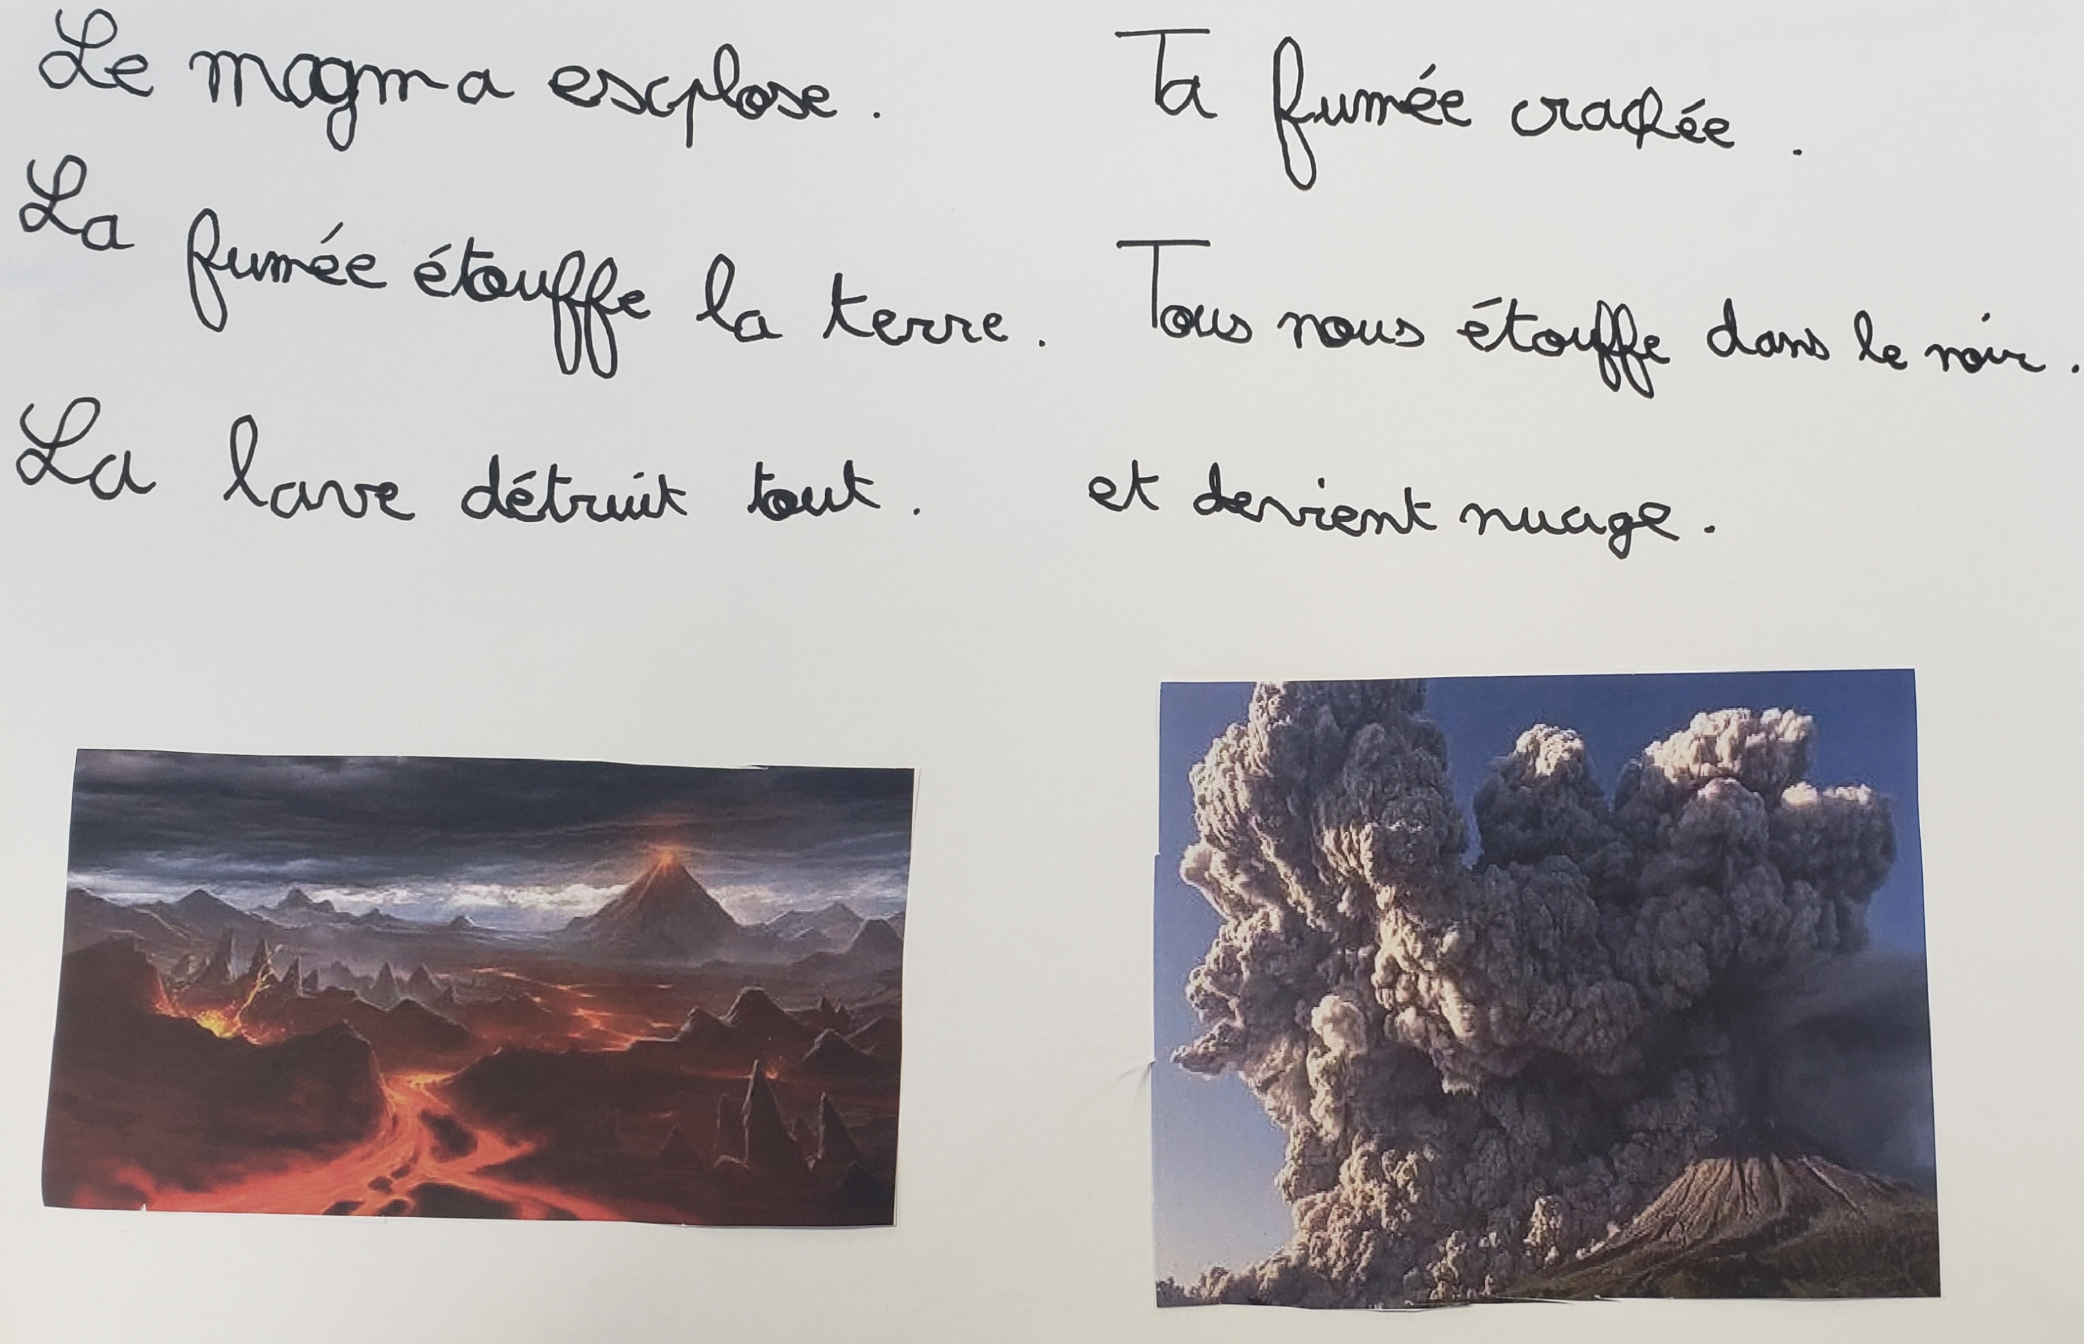 Le magma explose.
La fumée étouffe la terre.
La lave détruit tout.
Ta fumée crachée.
Tous nous étouffe dans le noir.
et devient nuage.